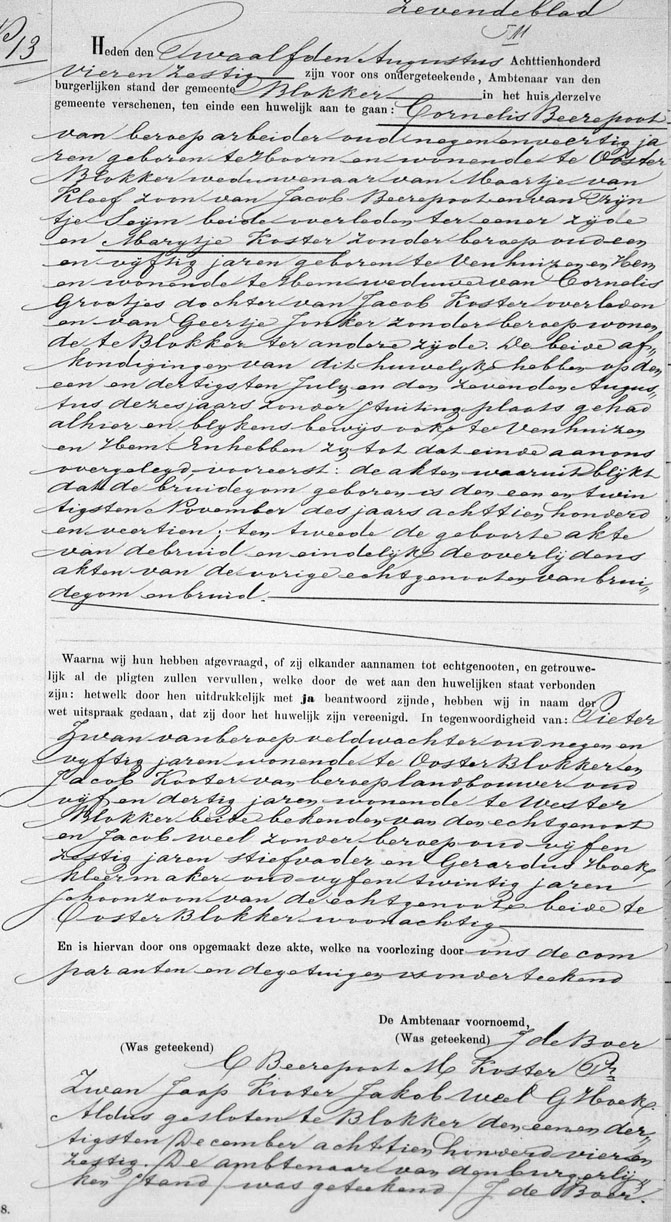 Zevendeblad
No 13
Heden den Twaalfden Augustus Achttienhonderd
Vierenzestig zijn voor ons ondergeteekende, Ambtenaar van den
burgerlijken stand der gemeente Blokker in het huis derzelve
gemeente verschenen, ten einde een huwelijk aan te gaan: Cornelis Beerepoot
van beroep arbeider oud negen en veertig ja
ren geboren te Hoorn en wonende te Ooster
Blokker weduwenaar van Maartje van
Kleef zoon van Jacob Beerepoot en van Trijn
tje Seijm beide overleden ter eener zijde
en Marytje Koster zonder beroep oud een
en vijftig jaren geboren te Venhuizen en Hem
en wonende te Hem weduwe van Cornelis
Grootjes dochter van Jacob Koster overleden
en van Geertje Jonker zonder beroep wonen„
de te Blokker ter andere zijde. De beide af„
kondigingen van dit huwelijk hebben op den
een en dertigsten July en den zevenden Augus„
tus dezes jaars zonder stuiting plaats gehad
alhier en blykens bewijs ook te Venhuizen
en Hem. En hebben zy tot dat einde aan ons
overgelegd, vooreerst: de akten waaruit blijkt
dat de bruidegom geboren is den een en twin
tigsten November des jaars achttien honderd
en veertien; ten tweede de geboorte akte
van de bruid en eindelijk de overlijdens
akten van de vorige echtgenooten van brui„
degom en bruid.
Waarna wij hun hebben afgevraagd, of zij elkander aannamen tot echtgenooten, en getrouwe-
lijk al de pligten zullen vervullen, welke door de wet aan den huwelijken staat verbonden
zijn: hetwelk door hen uitdrukkelijk met ja beantwoord zijnde, hebben wij in naam der
wet uitspraak gedaan, dat zij door het huwelijk zijn vereenigd. In tegenwoordigheid van: Pieter
Zwan van beroep veldwachter oud negen en
vyftig jaren wonende te Ooster Blokker en
Jacob Kooter van beroep landbouwer oud
vijf en dertig jaren wonende te Wester
Blokker beide bekenden van den echtgenoot
en Jacob Weel zonder beroep oud vijf en
zestig jaren stiefvader en Gerardus Hoek
kleermaker oud vyf en twintig jaren
schoonzoon van de echtgenoote beide te
Ooster Blokker woonachtig
En is hiervan door ons opgemaakt deze akte, welke na voorlezing door ons de com
paranten en de getuigen is onderteekend
De Ambtenaar voornoemd,
(Was geteekend) J de Boer
(Was geteekend)
C Beerepoot M Koster Pr
Zwan Jaap Kooter Jakob Weel G Hoek.
Aldus gesloten te Blokker den een en der„
tigsten December achttien honderd vier en
zestig. De ambtenaar van den burgerlij„
ken stand (was geteekend) J de Boer.
8.